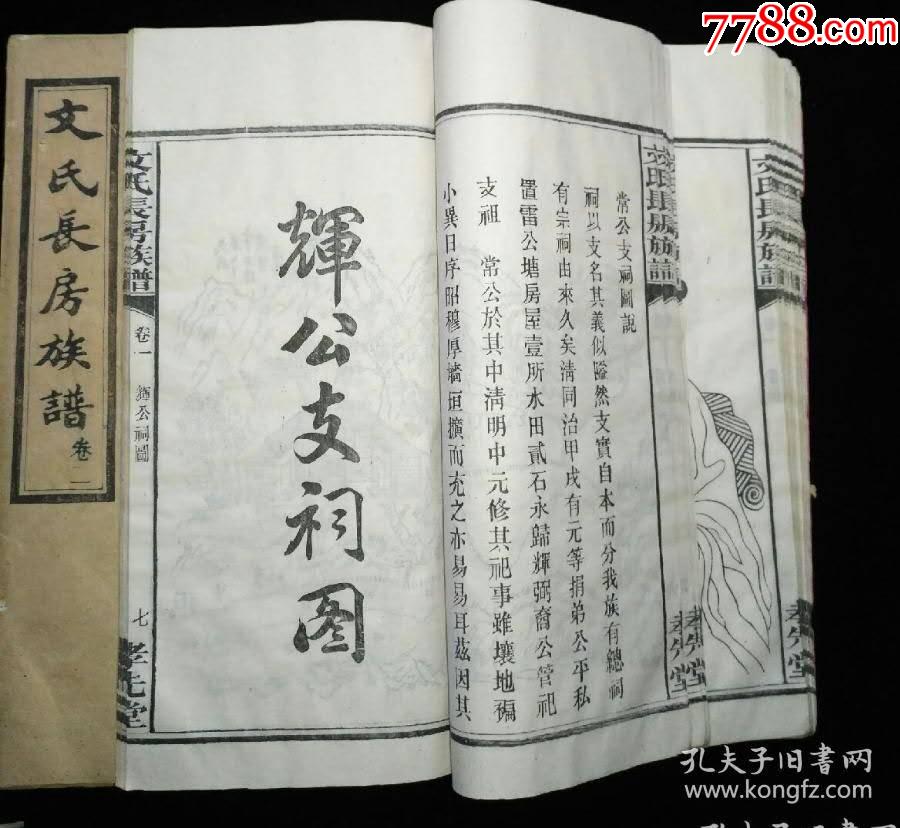 7788.com
文氏長房族譜
卷一
文氏長房族譜
卷一
輝公祠圖
七
孝先堂
輝公支祠图
常公支祠圖説
祠以支名其義似隘然支實自本而分我族有總祠
有宗祠由來久矣清同治甲戌有元等捐弟公平私
置雷公塘房屋壹所水田貳石永歸輝弼裔公管祀
支祖 常公於其中清明中元修其祀事雖壤地褊
小異日序昭穆厚墻垣擴而充之亦易易耳茲因其
文氏長房族譜
孝先堂
文氏長房族譜
孝先堂
孔夫子旧书网
www.kongfz.com